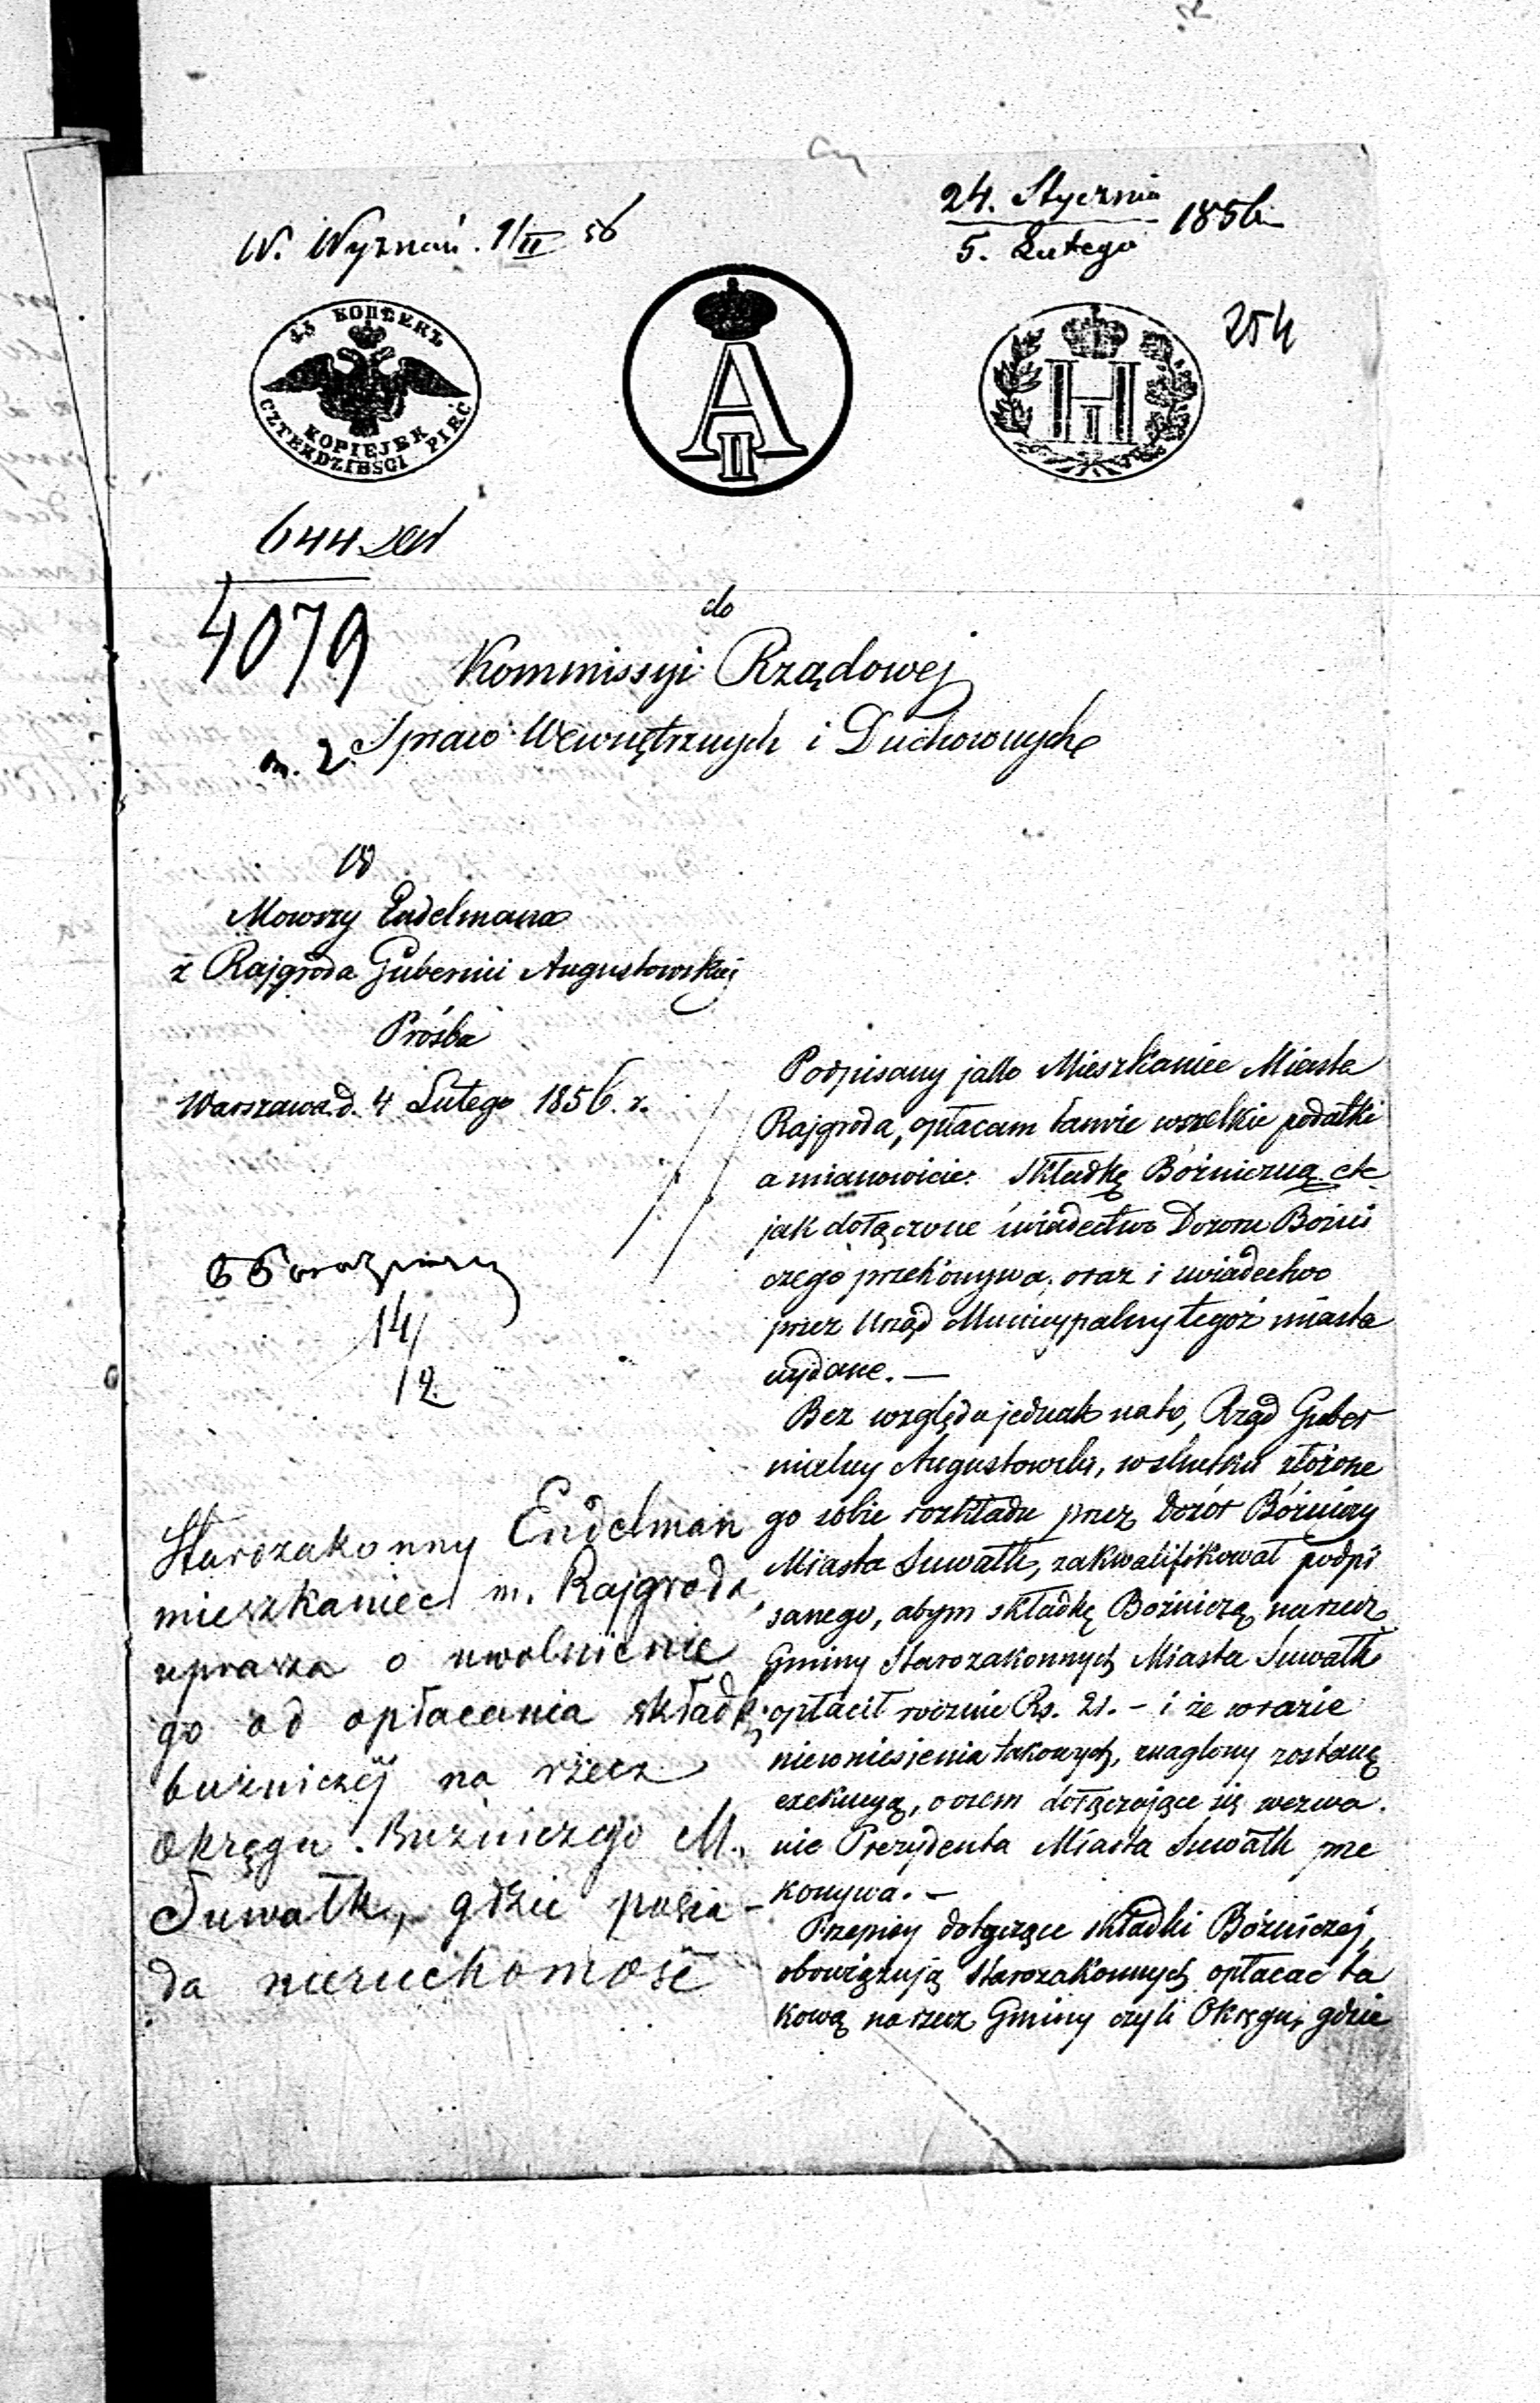 24. Stycznia
5. Lutego 1856
W. Wyznań. 9/II 56
45 КОПѢЕКЪ
KOPIEJEK
CZTERDZIEŚCI PIĘĆ
A II
H I
254
644
4079
do
Kommissyi Rządowej
Spraw Wewnętrznych i Duchownych
m. 2
Od
Mowszy Endelmana
z Rajgroda Gubernii Augustowskiej
Prośba
Warszawa d. 4 Lutego 1856. r.
14/
12
Starozakonny Endelman
mieszkaniec m. Rajgroda,
uprasza o uwolnienie
go od opłacania składki
bużniczéj na rzecz
Okręgu Bużniczego M.
Suwałk, gdzie posia-
da nieruchomość
Podpisany jako Mieszkaniec Miasta
Rajgroda, opłacam tamże wszelkie podatki
a mianowicie: Składkę Bóżniczną etc
jak dołączone świadectwo Dozoru Bożni
czego przekonywa, oraz i świadectwo
przez Urząd Municypalny tegoż miasta
wydane. —
Bez względu jednak na to, Rząd Guber
nialny Augustowski, wskutku złożone
go sobie rozkładu przez Dozór Bóżniczy
Miasta Suwałk, zakwalifikował podpi
sanego, abym składkę Bożniczą na rzecz
Gminy Starozakonnych Miasta Suwałk
opłacił rocznie Rs. 21. – i że w razie
niewniesienia takowych, znaglony zostanę
exekucyą, o czem dołączające się wezwa-
nie Prezydenta Miasta Suwałk prze
konywa. –
Przepisy dotyczące składki Bóżniczej,
obowiązują Starozakonnych opłacać ta
kową na rzecz Gminy czyli Okręgu, gdzie